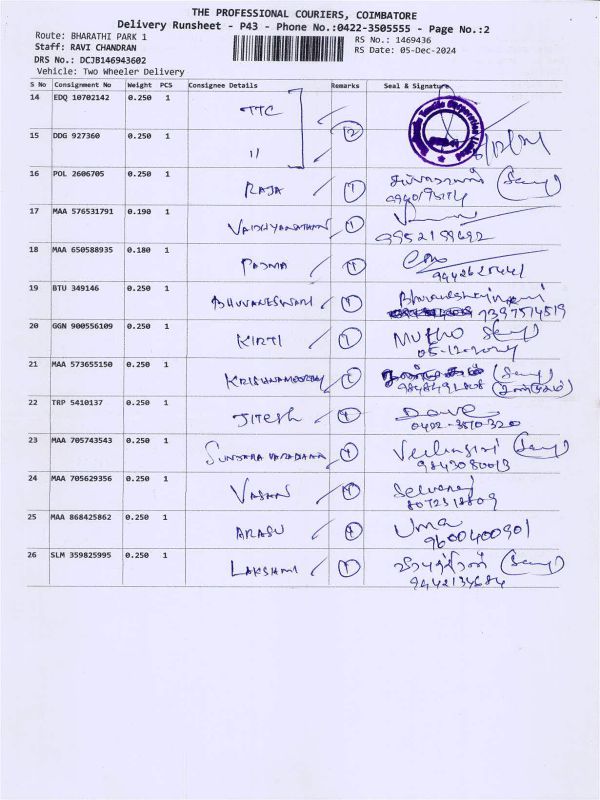 THE PROFESSIONAL COURIERS, COIMBATORE
Delivery Runsheet - P43 - Phone No.:0422-3505555 - Page No.:2
Route: BHARATHI PARK 1
RS No.: 1469436
Staff: RAVI CHANDRAN
RS Date: 05-Dec-2024
DRS No.: DCJB146943602
Vehicle: Two Wheeler Delivery
S No Consignment No Weight PCS Consignee Details Remarks Seal & Signature
14 EDQ 10702142 0.250 1 TTC 2
15 DDG 927360 0.250 1 11
16 POL 2606705 0.250 1 RAJA 1
17 MAA 576531791 0.190 1 VAIDHYANATHAN 1
9952199692
18 MAA 650588935 0.180 1 PADMA 1
19 BTU 349146 0.250 1 BHUVANESWARI 1
7397574519
20 GGN 900556109 0.250 1 KIRTI 1 Muthu
05-12-2024
21 MAA 573655150 0.250 1 KRISHNAMOORTHY 1
22 TRP 5410137 0.250 1 JITESH 1 Dave
0422-3570320
23 MAA 705743543 0.250 1 SUNDARA VARADHAN 1
9843080013
24 MAA 705629356 0.250 1 VASAN 1 Selvaraj
8072518809
25 MAA 868425862 0.250 1 ARASU 1 Uma
9600400901
26 SLM 359825995 0.250 1 LAKSHMI 1
9442134684